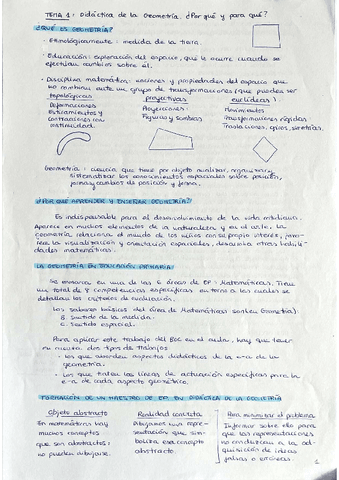 TEMA 1: Didáctica de la Geometría. ¿Por qué y para qué?
¿QUÉ ES GEOMETRÍA?
· Etimológicamente: medida de la tierra.
· Educación: exploración del espacio, qué le ocurre cuando se
efectúan cambios sobre él.
· Disciplina matemática: nociones y propiedades del espacio que
no cambian ante un grupo de transformaciones (que pueden ser
topológicas proyectivas euclídeas):
Deformaciones Proyecciones Movimientos
Estiramientos y Figuras y sombras Transformaciones rígidas
contracciones con Traslaciones, giros, simetrías
continuidad.
Geometría: ciencia que tiene por objeto analizar, organizar y
sistematizar los conocimientos espaciales sobre posición,
forma y cambios de posición y forma.
¿POR QUÉ APRENDER Y ENSEÑAR GEOMETRÍA?
Es indispensable para el desenvolvimiento de la vida cotidiana.
Aparece en muchos elementos de la naturaleza y en el arte. La
geometría relaciona el mundo de los niños con su propio interés, favo-
rece la visualización y orientación espaciales, desarrolla otras habili-
dades matemáticas.
LA GEOMETRÍA EN EDUCACIÓN PRIMARIA:
Se enmarca en una de las 6 áreas de EP: Matemáticas. Tiene
un total de 8 competencias específicas en torno a las cuales se
detallan los criterios de evaluación.
Los saberes básicos del área de Matemáticas son (en Geometría):
B. Sentido de la medida.
C. Sentido espacial.
Para aplicar este trabajo del BOC en el aula, hay que tener
en cuenta dos tipos de trabajos
· los que abordan aspectos didácticos de la e-a de la
geometría.
· Los que tratan las líneas de actuación específicas para la
e-a de cada aspecto geométrico.
FORMACIÓN DE UN MAESTRO DE EP EN DIDÁCTICA DE LA GEOMETRÍA
Objeto abstracto Realidad concreta Para minimizar el problema
En matemáticas hay Dibujamos una repre- Informar sobre ello para
muchos conceptos sentación que sim- que las representaciones
que son abstractos, boliza ese concepto no conduzcan a la ad-
no pueden dibujarse. abstracto. quisición de ideas
falsas o erróneas.
1